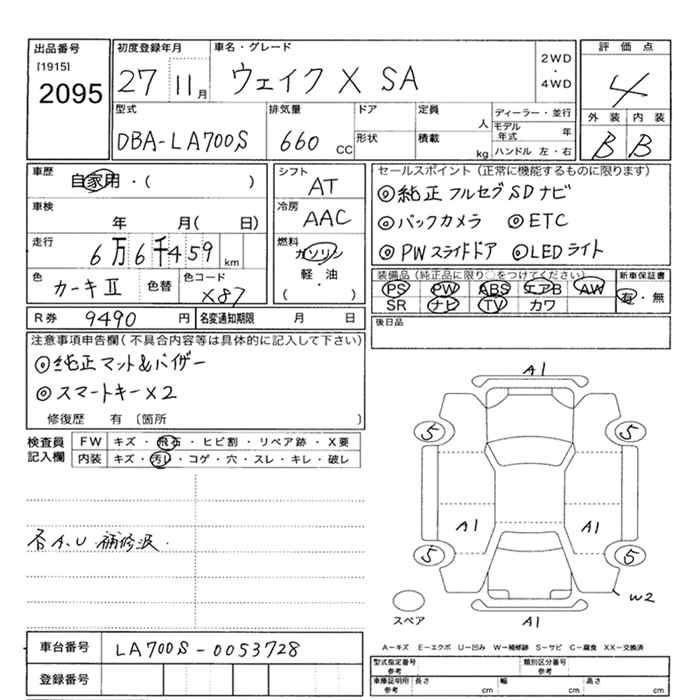 出品番号
[1915]
2095
初度登録年月
27 11月
車名・グレード
ウェイク X SA
2WD
・
4WD
評価点
4
外装 内装
B B
型式
DBA-LA700S
排気量
660 CC
ドア
形状
定員 人
積載 kg
ディーラー・並行
モデル年式 年
ハンドル 左・右
車歴
自家用・( )
車検
年 月( 日)
走行
6万6千459 km
色
カーキⅡ
色替
色コード
X87
シフト
AT
冷房
AAC
燃料
ガソリン
軽・油
( )
セールスポイント(正常に機能するものに限ります)
◎純正フルセグSDナビ
◎バックカメラ ◎ETC
◎PWスライドドア ◎LEDライト
装備品(純正品に限り○をつけてください)
PS PW ABS エアB AW
SR ナビ TV カワ
新車保証書
有・無
R券 9490 円
名変通知期限 月 日
後日品
注意事項申告欄(不具合内容等は具体的に記入して下さい)
◎純正マット&バイザー
◎スマートキーX2
修復歴 有〔箇所 〕
検査員
記入欄
FW キズ・飛石・ヒビ割・リペア跡・X要
内装 キズ・汚レ・コゲ・穴・スレ・キレ・破レ
各A.U 補修波.
A1
5 5
A1 A1
5 5
W2
スペア
A1
A−キズ E−エクボ U−凹み W−補修跡 S−サビ C−腐食 XX−交換済
車台番号 LA700S-0053728
登録番号
型式指定番号
参考
類別区分番号
参考
車庫証明用
参考
長さ cm
幅 cm
高さ cm